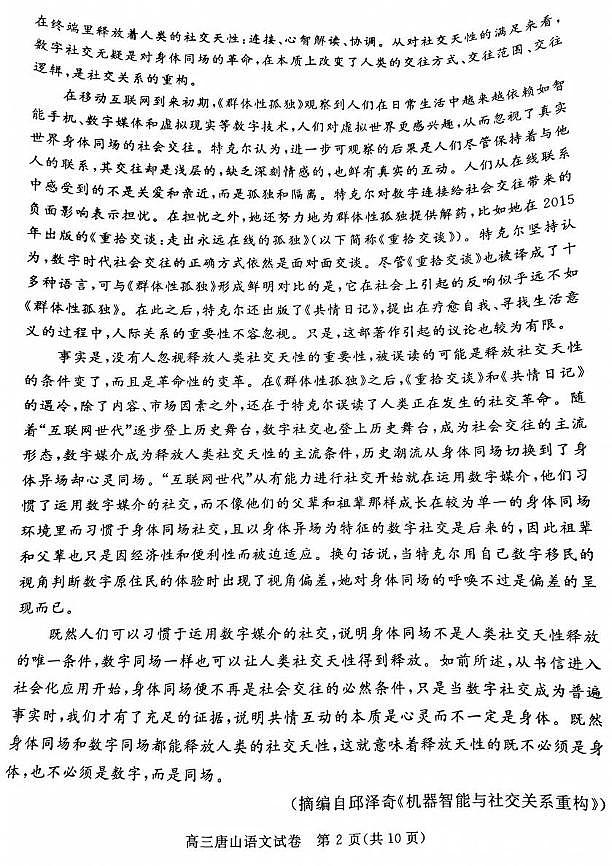 在终端里释放着人类的社交天性:连接、心智解读、协调。从对社交天性的满足来看,
数字社交无疑是对身体同场的革命,在本质上改变了人类的交往方式、交往范围、交往
逻辑,是社交关系的重构。
在移动互联网到来初期,《群体性孤独》观察到人们在日常生活中越来越依赖如智
能手机、数字媒体和虚拟现实等数字技术,人们对虚拟世界更感兴趣,从而忽视了真实
世界身体同场的社会交往。特克尔认为,进一步可观察的后果是人们尽管保持着与他
人的联系,其交往却是浅层的,缺乏深刻情感的,也鲜有真实的互动。人们从在线联系
中感受到的不是关爱和亲近,而是孤独和隔离。特克尔对数字连接给社会交往带来的
负面影响表示担忧。在担忧之外,她还努力地为群体性孤独提供解药,比如她在 2015
年出版的《重拾交谈:走出永远在线的孤独》(以下简称《重拾交谈》)。特克尔坚持认
为,数字时代社会交往的正确方式依然是面对面交谈。尽管《重拾交谈》也被译成了十
多种语言,可与《群体性孤独》形成鲜明对比的是,它在社会上引起的反响似乎远不如
《群体性孤独》。在此之后,特克尔还出版了《共情日记》,提出在疗愈自我、寻找生活意
义的过程中,人际关系的重要性不容忽视。只是,这部著作引起的议论也较为有限。
事实是,没有人忽视释放人类社交天性的重要性,被误读的可能是释放社交天性
的条件变了,而且是革命性的变革。在《群体性孤独》之后,《重拾交谈》和《共情日记》
的遇冷,除了内容、市场因素之外,还在于特克尔误读了人类正在发生的社交革命。随
着“互联网世代”逐步登上历史舞台,数字社交也登上历史舞台,成为社会交往的主流
形态,数字媒介成为释放人类社交天性的主流条件,历史潮流从身体同场切换到了身
体异场却心灵同场。“互联网世代”从有能力进行社交开始就在运用数字媒介,他们习
惯了运用数字媒介的社交,而不像他们的父辈和祖辈那样成长在较为单一的身体同场
环境里而习惯于身体同场社交,且以身体异场为特征的数字社交是后来的,因此祖辈
和父辈也只是因经济性和便利性而被迫适应。换句话说,当特克尔用自己数字移民的
视角判断数字原住民的体验时出现了视角偏差,她对身体同场的呼唤不过是偏差的呈
现而已。
既然人们可以习惯于运用数字媒介的社交,说明身体同场不是人类社交天性释放
的唯一条件,数字同场一样也可以让人类社交天性得到释放。如前所述,从书信进入
社会化应用开始,身体同场便不再是社会交往的必然条件,只是当数字社交成为普遍
事实时,我们才有了充足的证据,说明共情互动的本质是心灵而不一定是身体。既然
身体同场和数字同场都能释放人类的社交天性,这就意味着释放天性的既不必须是身
体,也不必须是数字,而是同场。
(摘编自邱泽奇《机器智能与社交关系重构》)
高三唐山语文试卷 第 2 页(共 10 页)